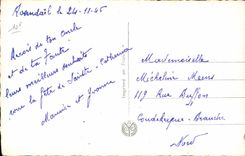 le 24-11-45
Reçois de ton oncle
et de ta Tante
leurs meilleurs souhaits
pour la fête de Sainte-Catherine
Maurice et Yvonne
Mademoiselle
Micheline
119 Rue
Coudekerque-Branche
Nord